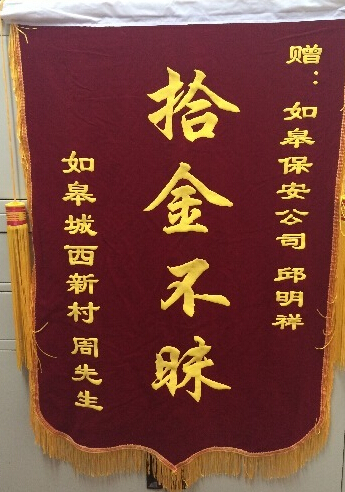 赠：如皋保安公司 邱明祥
拾金不昧
如皋城西新村 周先生